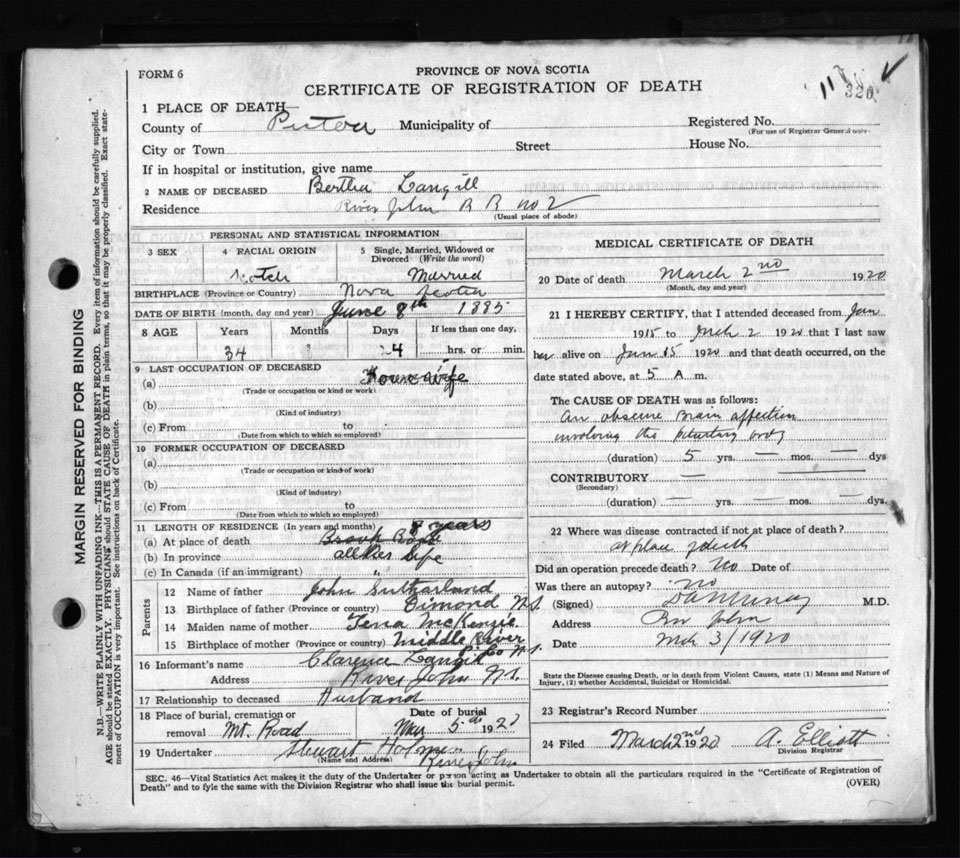 FORM 6
PROVINCE OF NOVA SCOTIA
CERTIFICATE OF REGISTRATION OF DEATH
11
326
1 PLACE OF DEATH—
County of Pictou Municipality of
Registered No.
(For use of Registrar General only)
City or Town Street House No.
If in hospital or institution, give name
2 NAME OF DECEASED Bertha Langill
Residence River John R R no 2
(Usual place of abode)
MARGIN RESERVED FOR BINDING
N.B.—WRITE PLAINLY WITH UNFADING INK—THIS IS A PERMANENT RECORD. Every item of information should be carefully supplied.
AGE should be stated EXACTLY. PHYSICIANS should STATE CAUSE OF DEATH in plain terms, so that it may be properly classified. Exact state-
ment of OCCUPATION is very important. See instructions on back of Certificate.
PERSONAL AND STATISTICAL INFORMATION
3 SEX
4 RACIAL ORIGIN
Scotch
5 Single, Married, Widowed or
Divorced (Write the word)
Married
BIRTHPLACE (Province or Country) Nova Scotia
DATE OF BIRTH (month, day and year) June 8th 1885
8 AGE Years Months Days If less than one day,
34 24 hrs. or min.
9 LAST OCCUPATION OF DECEASED
(a) Housewife
(Trade or occupation or kind or work)
(b)
(Kind of industry)
(c) From to
(Date from which to which so employed)
10 FORMER OCCUPATION OF DECEASED
(a)
(Trade or occupation or kind of work)
(b)
(Kind of industry)
(c) From to
(Date from which to which so employed)
11 LENGTH OF RESIDENCE (In years and months) 8 years
(a) At place of death
(b) In province all her life
(c) In Canada (if an immigrant) "
Parents
12 Name of father John Sutherland
13 Birthplace of father (Province or country) Dimond N.S.
14 Maiden name of mother Tena McKenzie
15 Birthplace of mother (Province or country) Middle River
P. Co N.S.
16 Informant's name Clarence Langill
Address River John N.S.
17 Relationship to deceased Husband
18 Place of burial, cremation or
removal Mt. Road
Date of burial
Mar 5th 1920
19 Undertaker Stewart Holmes
(Name and Address) River John
MEDICAL CERTIFICATE OF DEATH
20 Date of death March 2nd 1920
(Month, day and year)
21 I HEREBY CERTIFY, that I attended deceased from Jan
1915 to Mch 2 1920 that I last saw
her alive on Jan 15 1920 and that death occurred, on the
date stated above, at 5 A m.
The CAUSE OF DEATH was as follows:
An obscure Brain affection
involving the pituitary body
(duration) 5 yrs. — mos. — dys
CONTRIBUTORY —
(Secondary)
(duration) — yrs. — mos. — dys.
22 Where was disease contracted if not at place of death?
at place of death
Did an operation precede death? No Date of
Was there an autopsy? No
(Signed) M.D.
Address Riv John
Date Mch 3/1920
State the Disease causing Death, or in death from Violent Causes, state (1) Means and Nature of
Injury, (2) whether Accidental, Suicidal or Homicidal.
23 Registrar's Record Number
24 Filed March 2nd 1920 A. Elliott
Division Registrar
SEC. 46—Vital Statistics Act makes it the duty of the Undertaker or person acting as Undertaker to obtain all the particulars required in the "Certificate of Registration of
Death" and to fyle the same with the Division Registrar who shall issue the burial permit.
(OVER)